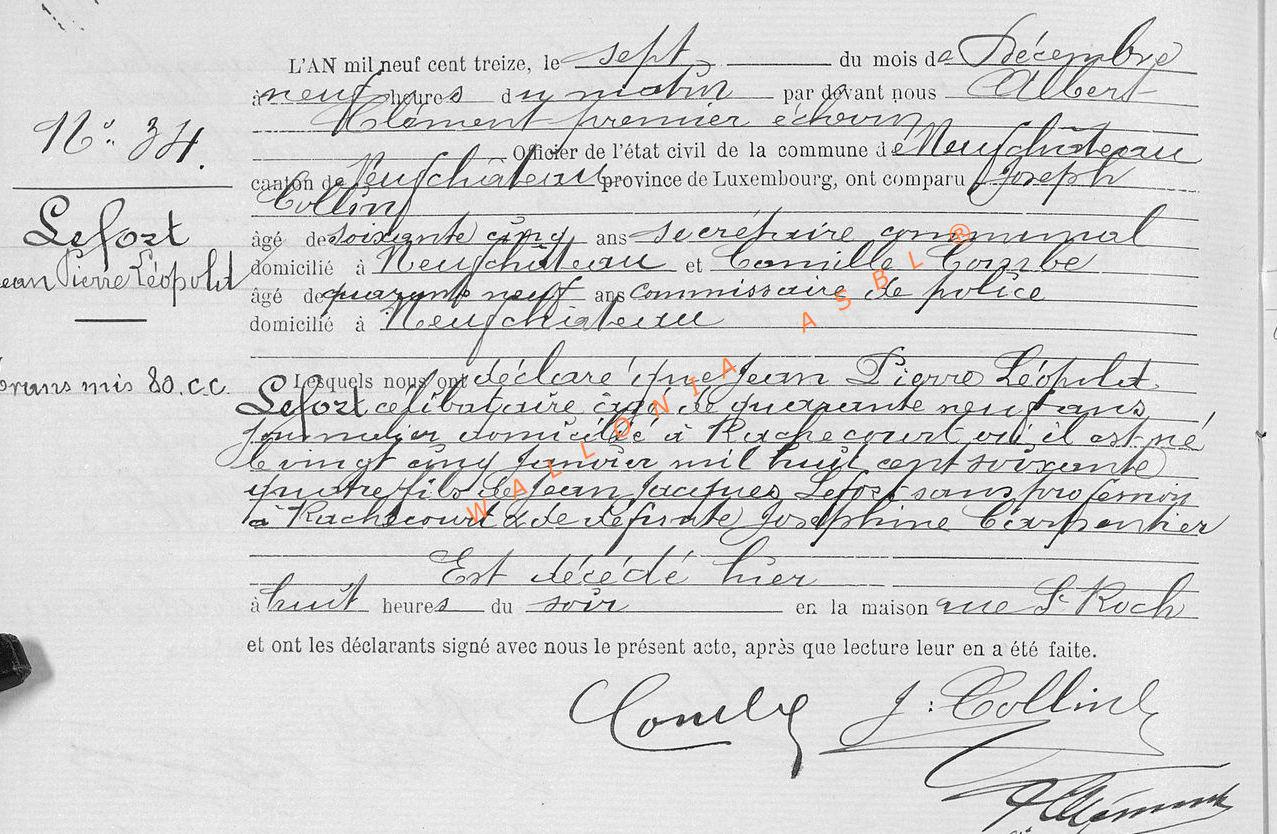 L'AN mil neuf cent treize, le sept du mois de Décembre
à neuf heures du matin par devant nous Albert
Clément premier échevin
Officier de l'état civil de la commune de Neufchâteau
canton de Neufchâteau province de Luxembourg, ont comparu Joseph
Collin
âgé de soixante cinq ans secrétaire communal
domicilié à Neufchâteau et Camille Combe
âgé de quarante neuf ans commissaire de police
domicilié à Neufchâteau
Lesquels nous ont déclaré que Jean Pierre Léopold
Lefort célibataire âgé de quarante neuf ans
journalier domicilié à Rachecourt où il est né
le vingt cinq Janvier mil huit cent soixante
quatre fils de Jean Jacques Lefort sans profession
à Rachecourt & de défunte Joséphine Carpentier
Est décédé hier
à huit heures du soir en la maison rue St Roch
et ont les déclarants signé avec nous le présent acte, après que lecture leur en a été faite.
Combe J. Collin
AClément
No 34.
Lefort
Jean Pierre Léopold
Transmis 80. c.c.
WALLONIA ASBL ®